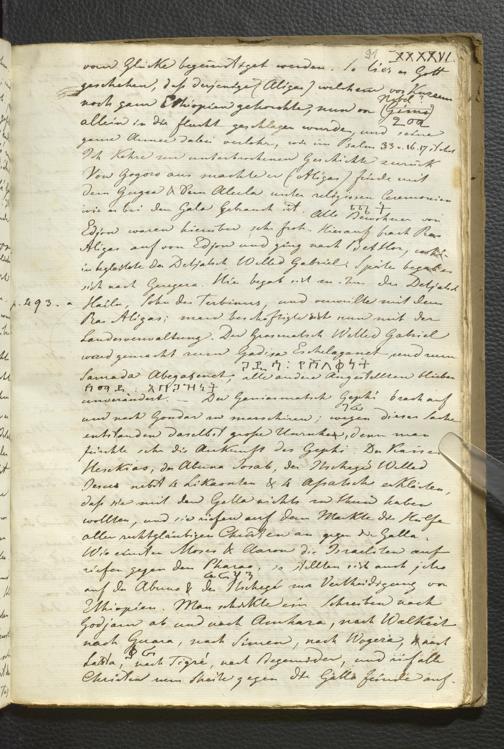 91 XXXXVI
vom Glücke begünstiget werden. So ließ es Gott
geschehen, daß derjenige (Aligas) welchem vor kurzem
noch ganz Ethiopien gehorchte, nun von
allein in die Flucht geschlagen wurde, und seine
ganze Armee dabei verlohr, wie im Psalm 33. 16. 17.
Ich kehre zur unterbrochenen Geschichte zurück
Von Gogoro aus machte er (Aligas) friede mit
dem Gugsa & dem Alula unter religiosen Ceremonien
wie es bei den Gala Gebrauch ist. Alle Bewohner von
Edjou waren hierüber sehr froh. Hierauf brach Ras
Aligas auf von Edjou und ging nach
in begleitete der Detjatsch Welled Gabriel: Später begab er
sich nach Hier begab sich zu ihm der Detjatsch
p. 493. Hailu, Sohn des und verweilte mit dem
Ras Aligas; man beschäftigte sich nun mit der
Landesverwaltung. Der Grasmatsch Welled Gabriel
ward gemacht zum und zum
alle andere Angestellten blieben
unverändert. — Der Geniasmatsch brach auf
um nach Gondar zu marschiren; wegen dieser Sache
entstanden daselbst große Unruhen, denn man
fürchte sehr die Ankunft des Der Kaiser
Heskias, der Abuna Josab, der Itschege Welled
nebst 4 Likaonten & 4 erklärten,
daß sie mit den Galla nichts zu thun haben
wollten, und sie riefen auf dem Markte die Hülfe
aller rechtgläubigen Christen an gegen die Galla.
Wie einsten Moses & Aaron die Israeliten auf
riefen gegen den Pharao, so stellten sich auch jetzo
auf der Abuna & der Itschegé zur Vertheidigung von
Ethiopien. Man schikte ein Schreiben nach
Godjam ab und nach Amhara, nach Walkait
nach Quara, nach Simen, nach Wogera, nach
Lasta, nach Tigré, nach Begemeder, und rief alle
Christen zum Streite gegen die Galla feinde auf.